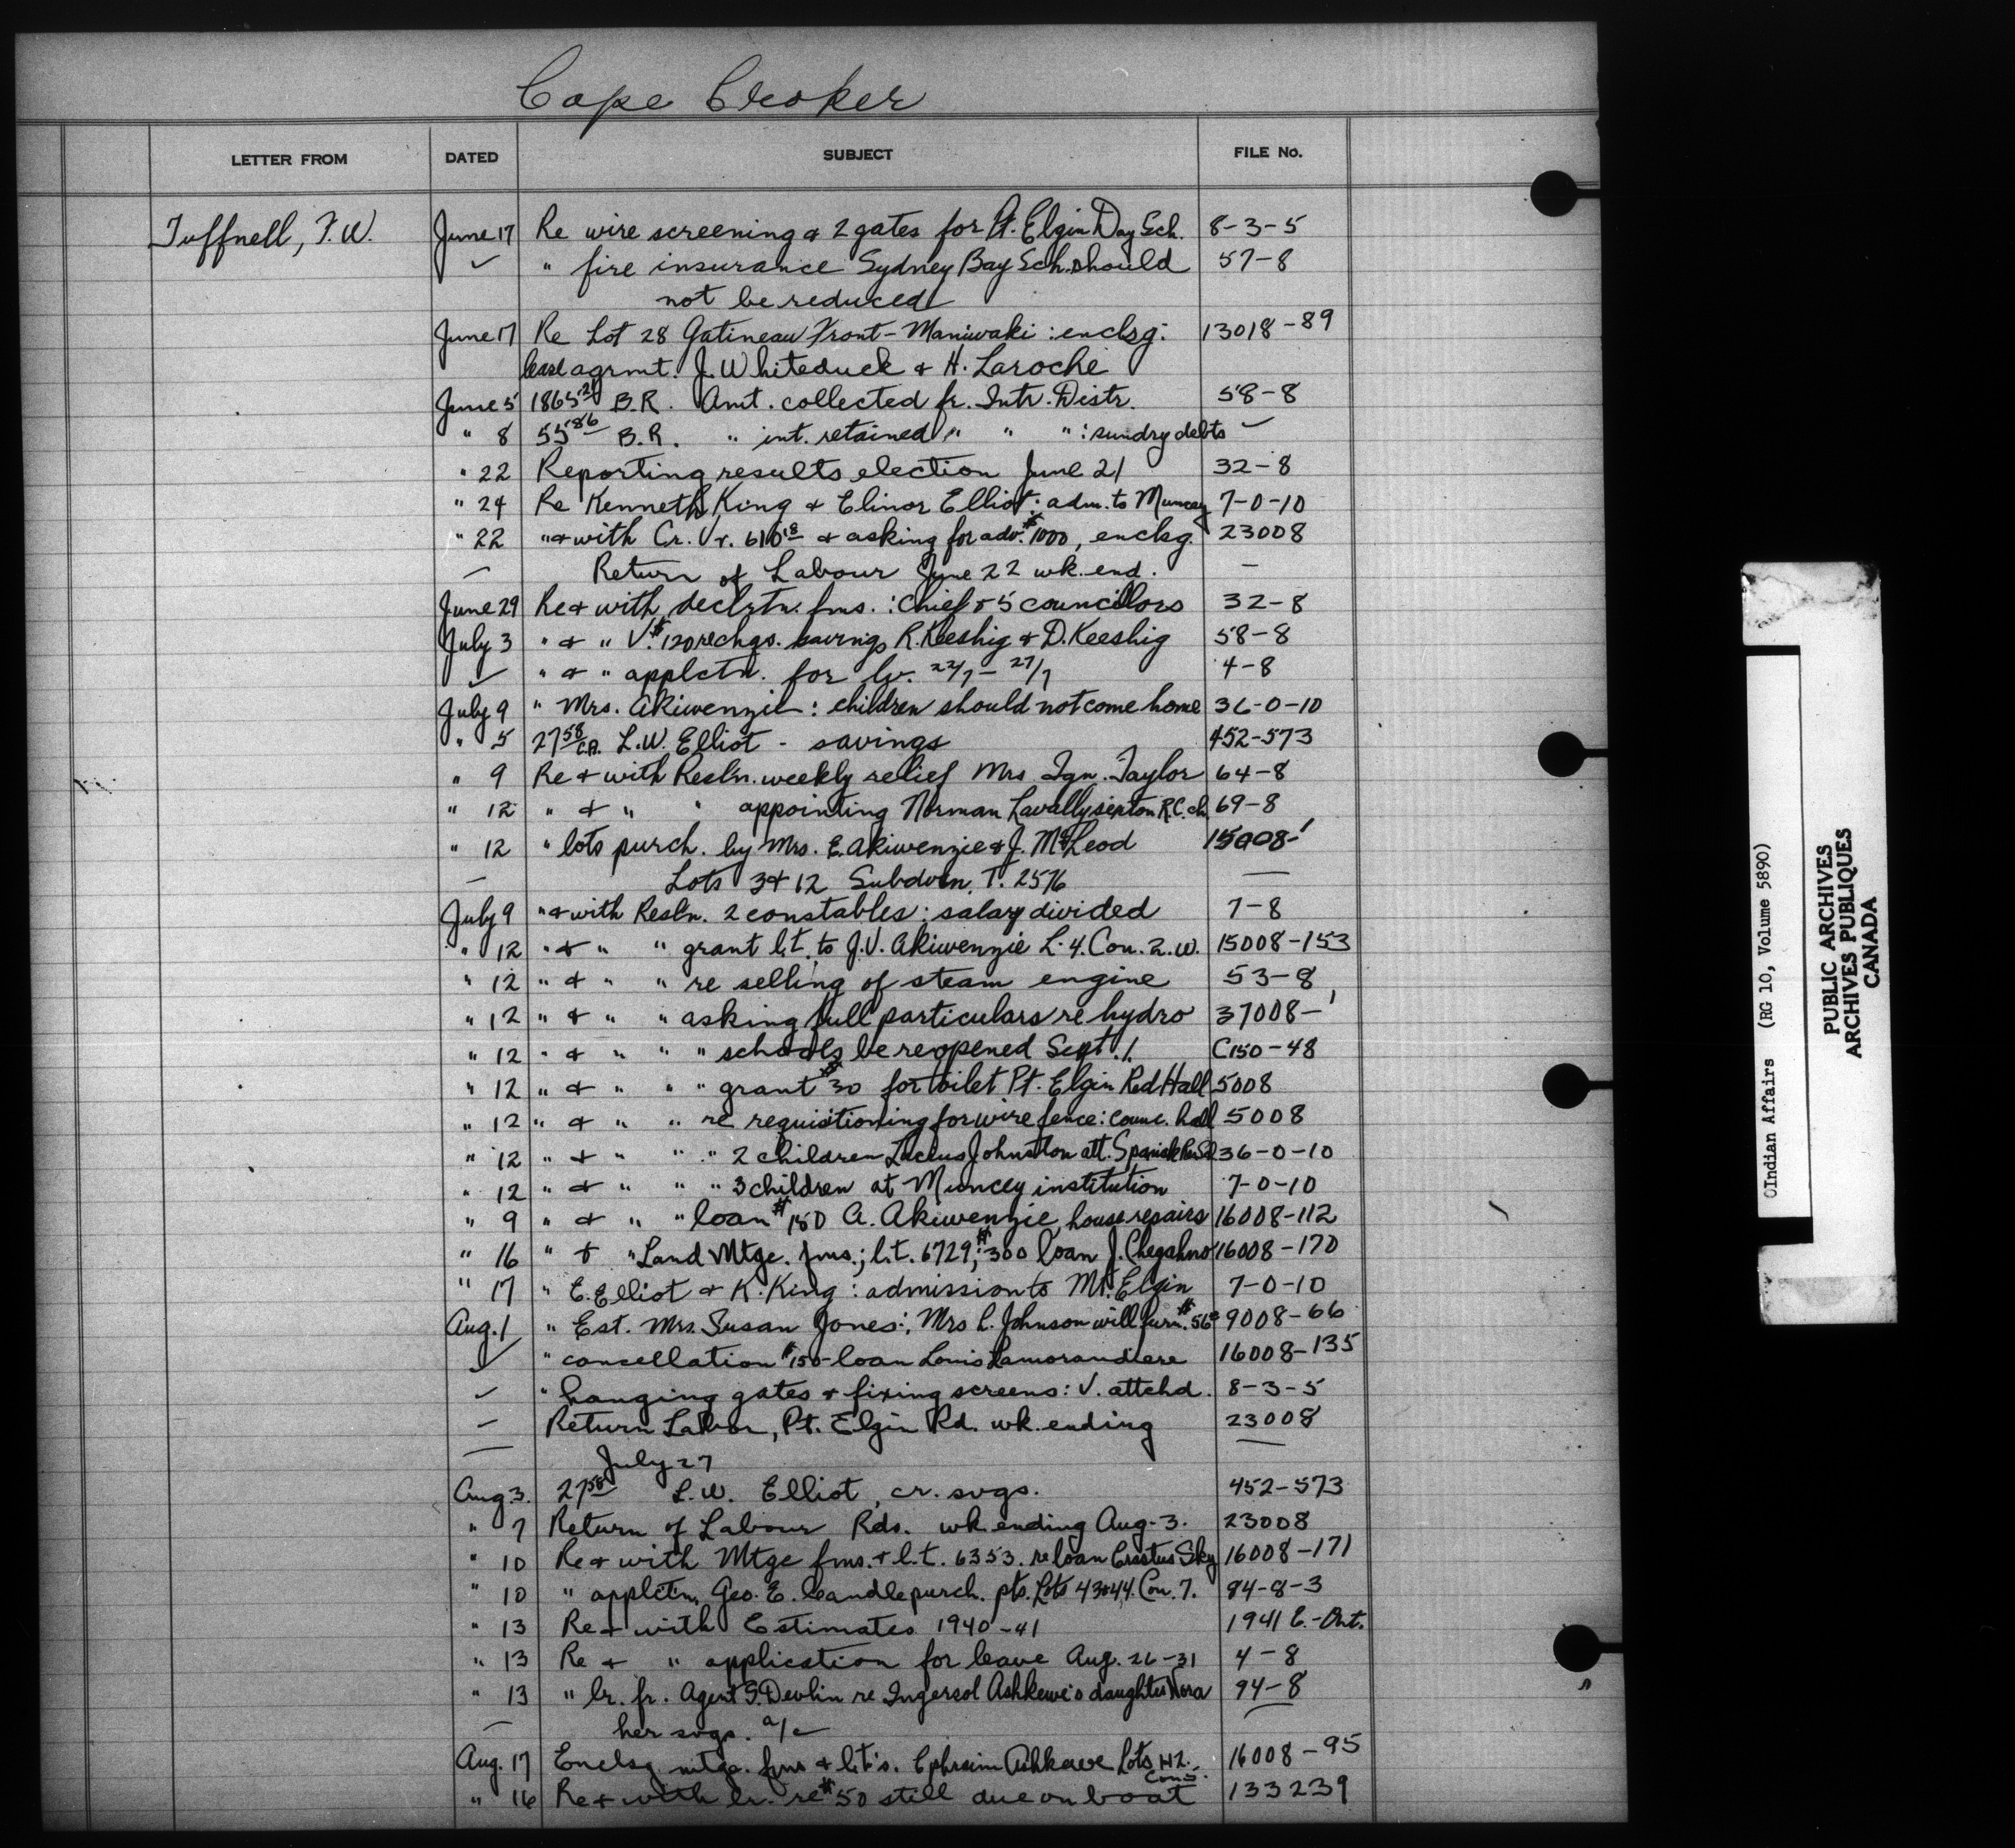 Cape Croker
LETTER FROM DATED SUBJECT FILE No.
Tuffnell, F.W. June 17 Re wire screening & 2 gates for Pt. Elgin Day Sch. 8-3-5
✓ " fire insurance Sydney Bay Sch. should 57-8
not be reduced
June 17 Re Lot 28 Gatineau Front - Maniwaki : enclsg: 13018-89
lease agrmt. J. Whiteduck & H. Laroche
June 5 1865 21 B.R. Amt. collected fr. Intr. Distr. 58-8
" 8 55 86 B.R. " int. retained " " " : sundry debts ✓
" 22 Reporting results election June 21 32-8
" 24 Re Kenneth King & Elinor Elliot : adm. to Muncey 7-0-10
" 22 " & with Cr. Vr. 616 18 & asking for adv. $1000, enclsg. 23008
— Return of Labour June 22 wk. end. —
June 29 Re & with declrtn. fms. : Chief & 5 councillors 32-8
July 3 " & " V. $120 rechgs. savings R. Keeshig & D. Keeshig 58-8
✓ " & " applctn. for lv. 22/7 - 27/7 4-8
July 9 " Mrs. Akiwenzie : children should not come home 36-0-10
" 5 27 58 C.A. L.W. Elliot - savings 452-573
" 9 Re & with Resl'n. weekly relief Mrs Ign. Taylor 64-8
" 12 " & " " appointing Norman Lavally sexton R.C. ch. 69-8
" 12 " lots purch. by Mrs. E. Akiwenzie & J. McLeod 15008-1
— Lots 3 & 12 Subdvn. T. 2576 —
July 9 " & with Resl'n. 2 constables : salary divided 7-8
" 12 " & " " grant l.t. to J.V. Akiwenzie L. 4. Con. 2. W. 15008-153
" 12 " & " " re selling of steam engine 53-8
" 12 " & " " asking full particulars re hydro 37008-1
" 12 " & " " " schools be reopened Sept. 1. C150-48
" 12 " & " " " grant $30 for toilet Pt. Elgin Red Hall 5008
" 12 " & " " re requisitioning for wire fence : counc. hall 5008
" 12 " & " " " 2 children Johnston att. Spanish 36-0-10
" 12 " & " " " 3 children at Muncey institution 7-0-10
" 9 " & " " loan $150 A. Akiwenzie, house repairs 16008-112
" 16 " & " Land Mtge. fms.; l.t. 6729; $300 loan J. Chegahno 16008-170
" 17 " E. Elliot & K. King : admission to Mt. Elgin 7-0-10
Aug. 1 " Est. Mrs. Susan Jones : Mrs C. Johnson will furn. $56 9008-66
✓ " cancellation $150 - loan Louis Lamorandiere 16008-135
✓ " hanging gates & fixing screens : V. attchd. 8-3-5
— Return Labor, Pt. Elgin Rd. wk. ending 23008
— July 27 —
Aug. 3. 27 58 L.W. Elliot, cr. svgs. 452-573
" 7 Return of Labour Rds. wk ending Aug. 3. 23008
" 10 Re & with Mtge fms. & l.t. 6353. re loan Erastus Sky 16008-171
" 10 " applct'n. Geo. E. Caudle purch. pts. Lots 43 & 44. Con. 7. 94-8-3
" 13 Re & with Estimates 1940-41 1941 E.-Ont.
" 13 Re & " application for leave Aug. 26-31 4-8
" 13 " lr. fr. Agent G. Devlin re Ingersol Ashkewe's daughter Nora 94-8
— her svgs. a/c —
Aug. 17 Enclsg mtge. fms & l.t's. Ephraim Ashkewe Lots 16008-95
Con 5.
" 16 Re & with lr. re $50 still due on boat 133239
©Indian Affairs (RG 10, Volume 5890)
PUBLIC ARCHIVES
ARCHIVES PUBLIQUES
CANADA